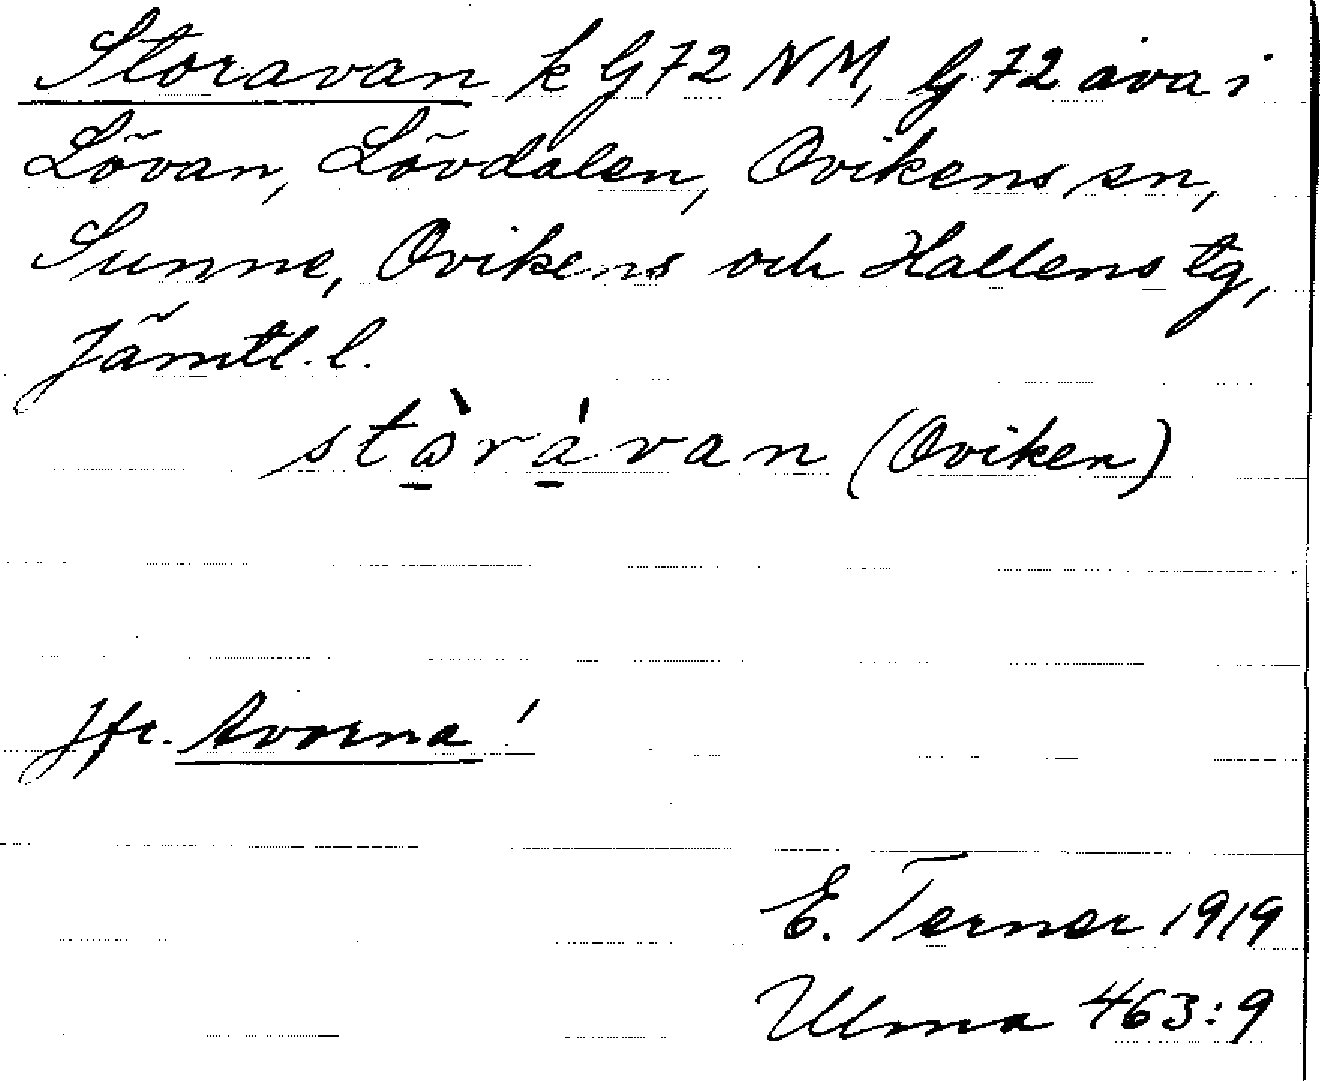 Storavan k G 72 NM, G 72 ava i
Lövan, Lövdalen, Ovikens sn,
Sunne, Ovikens och Hallens tg,
Jämtl. l.
stòrávan (Oviken)
Jfr. Avorna!
E. Terner 1919
Ulma 463:9